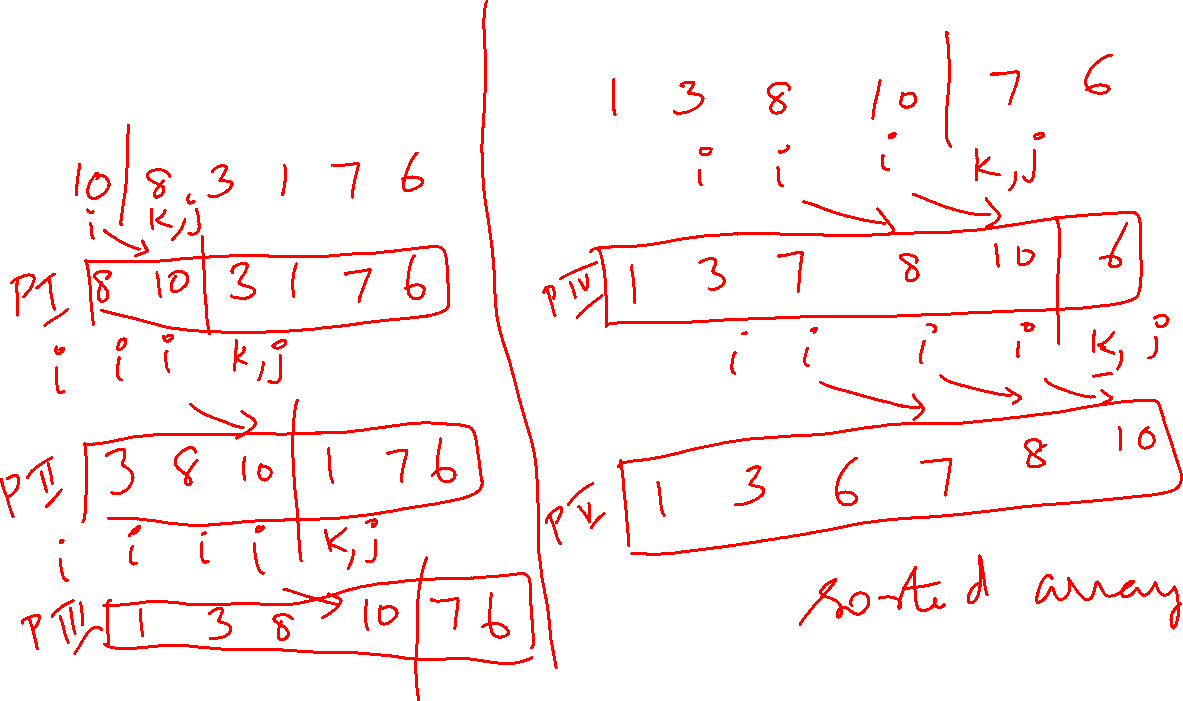 10 | 8 3 1 7 6
i k,j
P I 8 10 | 3 1 7 6
i i i k,j
P II 3 8 10 | 1 7 6
i i i i k,j
P III 1 3 8 10 | 7 6
1 3 8 10 | 7 6
i i i k,j
P IV 1 3 7 8 10 | 6
i i i i k,j
P V 1 3 6 7 8 10
sorted array